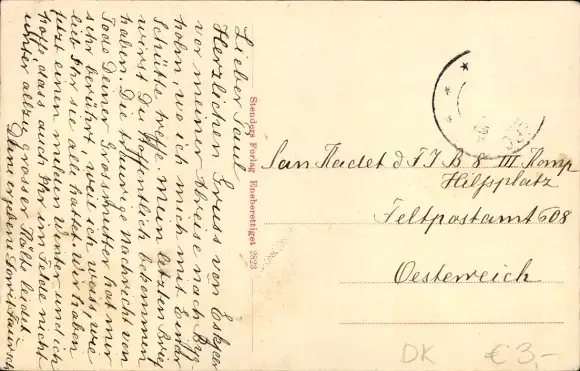 Lieber Paul
Herzlichen Gruss von Esbjer
vor meiner Abreise nach Byg-
holm, wo ich mich mit Einar
Schütte treffe. Mein letzten Brief
wirst Du hoffentlich bekommen
haben. Die traurige Nachricht von
Tode Deiner Grossmutter hat mir
sehr berührt, weil ich weis, wie
lieb Ihr sie alle hattet. Wir haben
jetzt einen milden Winter und ich
hoffe dass auch Ihr im Felde nicht
unter allzu grosser Kälte leidet.
Dein ergebene
Stenders Forlag Eneberettiget 2823
San Kadet d F J B 8 III Komp
Hilfsplatz
Feltpostamt 608
Oesterreich
DK €3,-